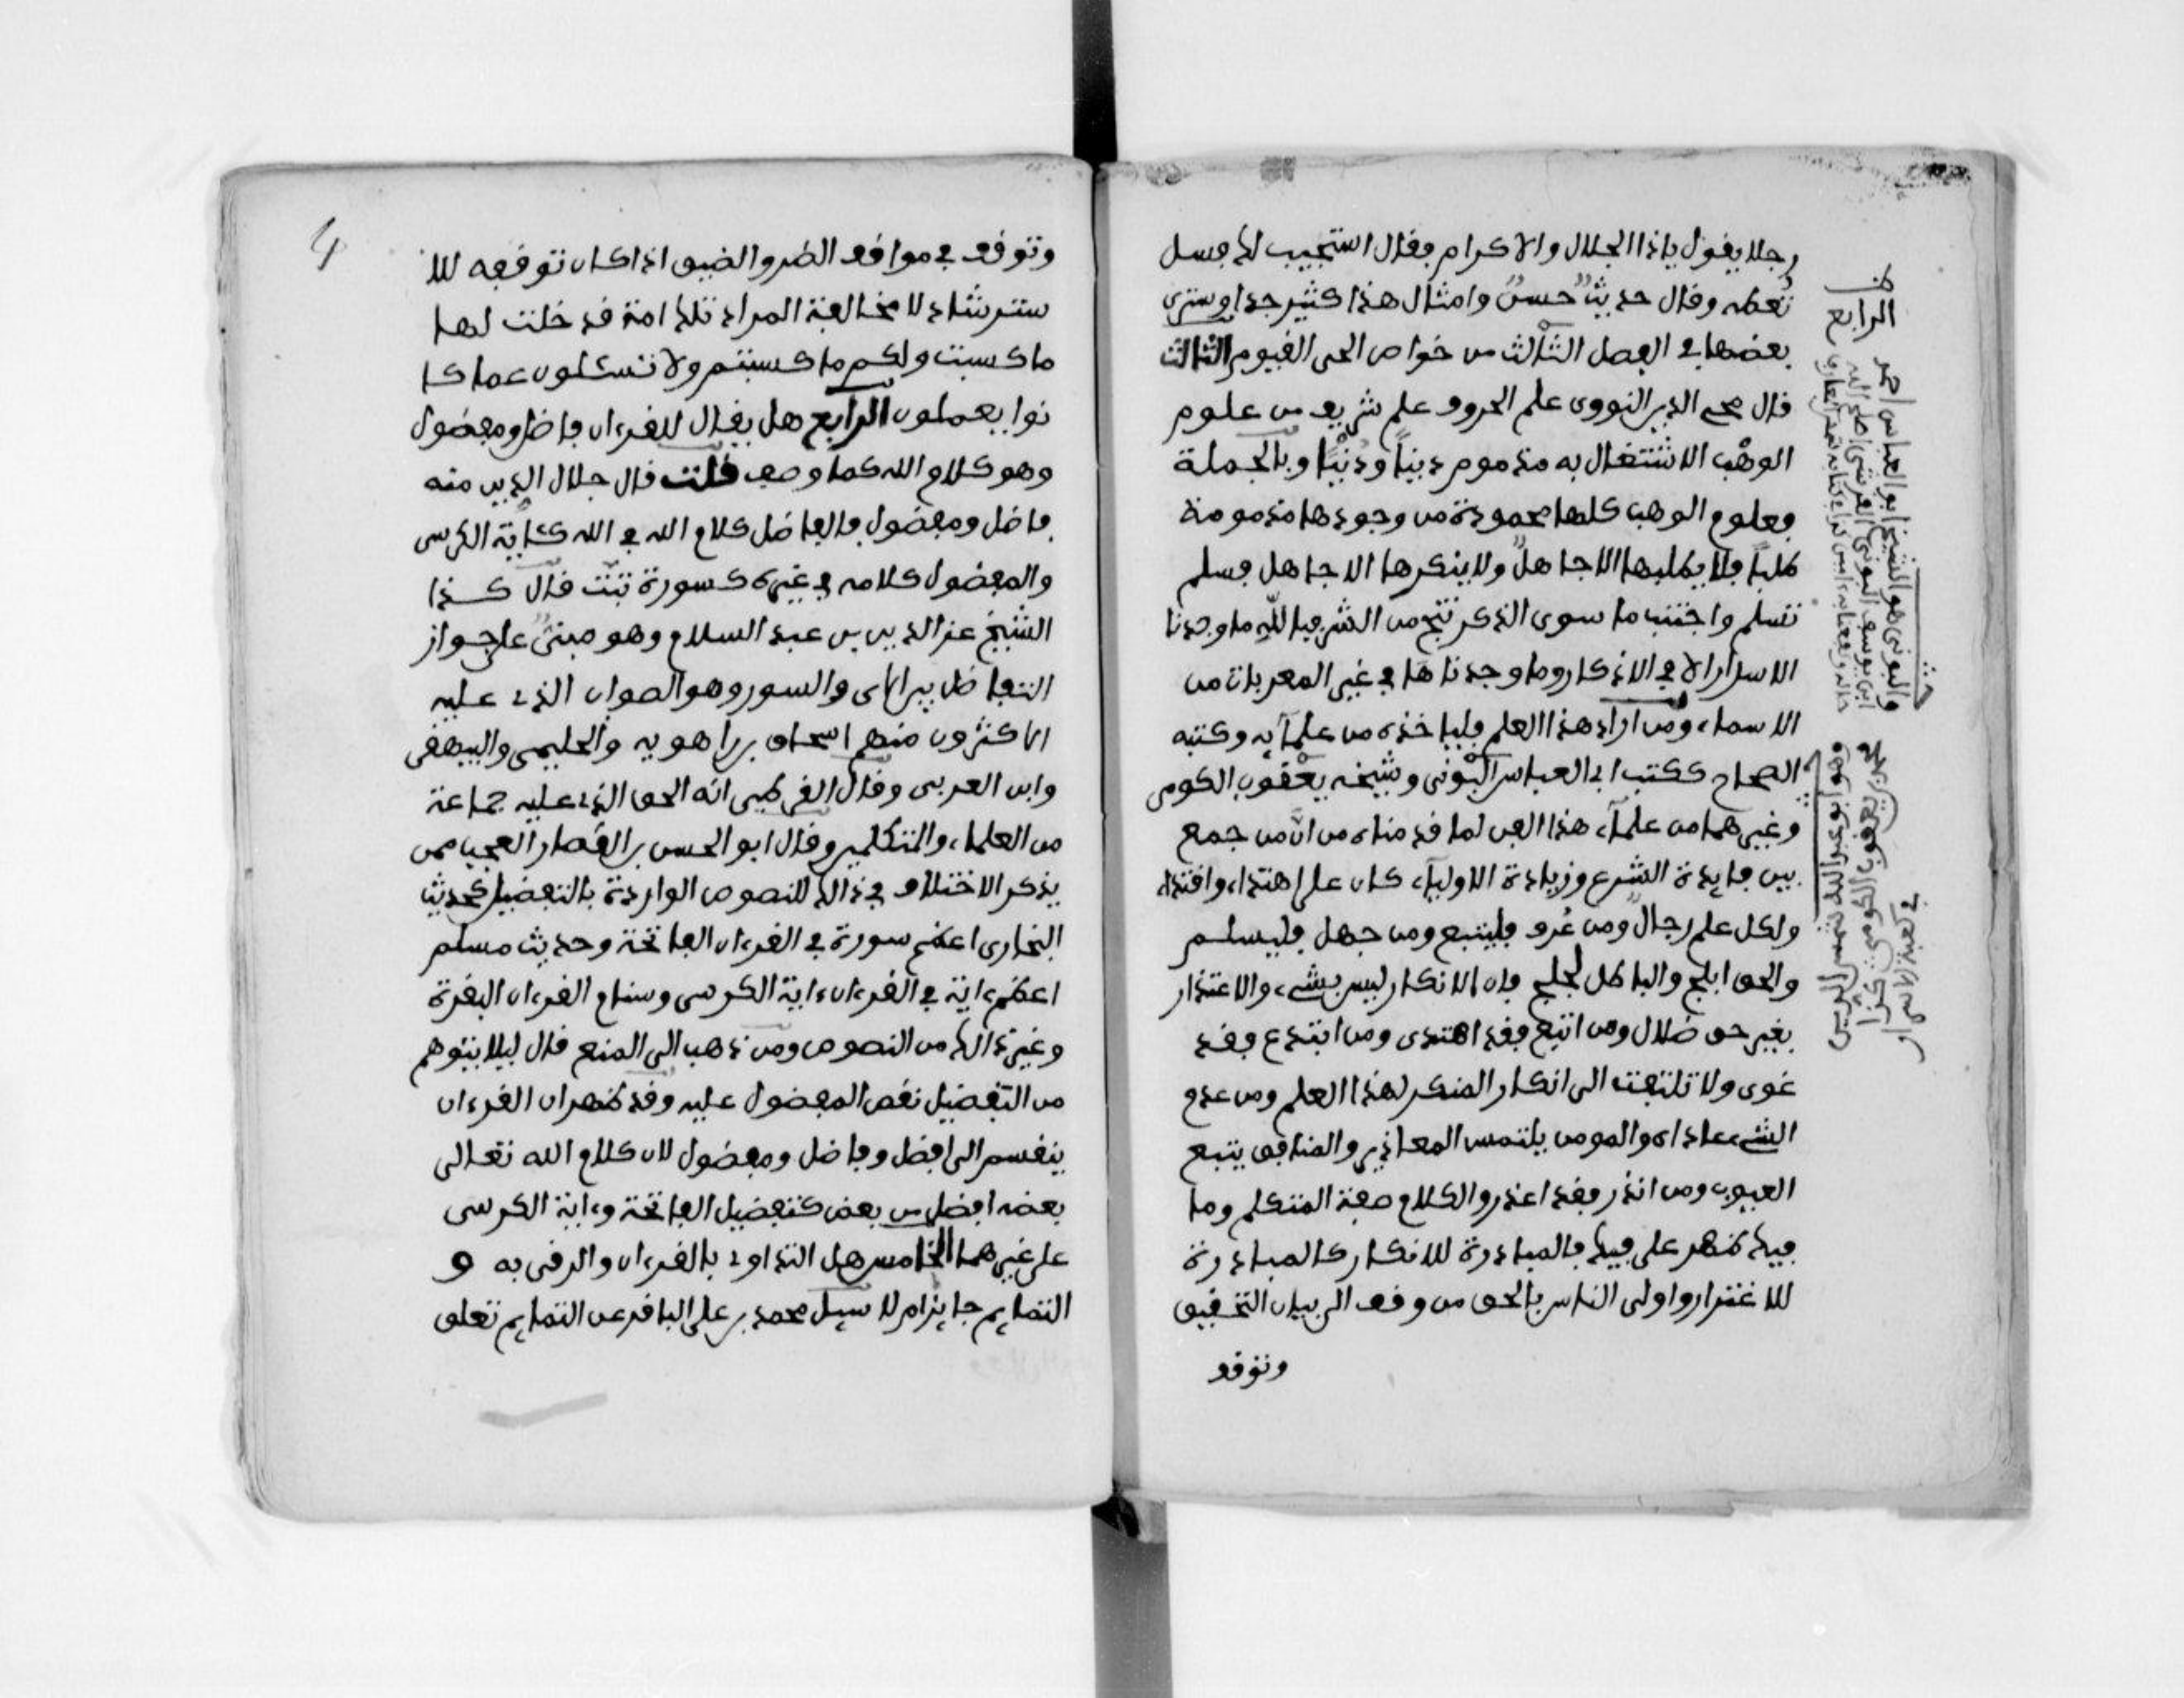 رجلا يقول ياذا الجلال والاكرام فقال استجيب لك فسل
تعطه وقال حديث حسن وامثال هذا كثير جدا وسترى
بعضها في الفصل الثالث من خواص الحى القيوم الثالث
قال محي الدين النووى علم الحروف علم شريف من علوم
الوهب الاشتغال به مذموم دينا ودنيا وبالجملة
فعلوم الوهب كلها محمودة من وجودها مذمومة
طلبا فلا يطلبها الا جاهل ولا ينكرها الا جاهل فسلم
تسلم واجتنب ما سوى الذكر تنج من الشر فبالله ما وجدنا
الاسرار الا في الاذكار وما وجدناها في غير المعربات من
الاسماء ومن اراد هذا العلم فلياخذه من علمائه وكتبه
الصحاح ككتب ابى العباس البونى وشيخه يعقوب الكومى
وغيرهما من علماء هذا الفن لما قدمناه من ان من جمع
بين فايدة الشرع وزيادة الاولياء كان على اهتداء واقتداء
ولكل علم رجال ومن عرف فليتبع ومن جهل فليسلم
والحق ابلج والباطل لجلج فان الانكار ليس بشىء والاعتذار
بغير حق ضلال ومن اتبع فقد اهتدى ومن ابتدع فقد
غوى ولا تلتفت الى انكار المنكر لهذا العلم ومن عدم
الشىء عاداه والمومن يلتمس المعاذير والمنافق يتبع
العيوب ومن انذر فقد اعذر والكلام صفة المتكلم وما
فيك ظهر على فيك فالمبادرة للانكار كالمبادرة
للاغترار واولى الناس بالحق من وقف الى بيان التحقيق
وتوقف
الرابع
والبونى هو الشيخ ابو العباس احمد
ابن يوسف البونى القرشى
4
وتوقف في مواقف الضر والضيق اذا كان توقفه للا
سترشاد لا مخالفة المراد تلك امة قد خلت لها
ما كسبت ولكم ما كسبتم ولا تسئلون عما كا
نوا يعملون الرابع هل يقال للقرءان فاضل ومفضول
وهو كلام الله كما وصف قلت قال جلال الدين منه
فاضل ومفضول فالفاضل كلام الله في الله كئاية الكرسى
والمفضول كلامه في غيره كسورة تبت قال كذا
الشيخ عز الدين بن عبد السلام وهو مبنى على جواز
التفاضل بين الاى والسور وهو الصواب الذى عليه
الاكثرون منهم اسحاق بن راهويه والحليمى والبيهقى
وابن العربى وقال القرطبى انه الحق الذى عليه جماعة
من العلماء والمتكلمين وقال ابو الحسن بن القصار العجب ممن
يذكر الاختلاف في ذالك للنصوص الواردة بالتفضيل كحديث
البخارى اعظم سورة في القرءان الفاتحة وحديث مسلم
اعظم ءاية في القرءان ءاية الكرسى وسنام القرءان البقرة
وغير ذالك من النصوص ومن ذهب الى المنع قال ليلا يتوهم
من التفضيل نقص المفضول عليه وقد ظهر ان القرءان
ينقسم الى افضل وفاضل ومفضول لان كلام الله تعالى
بعضه افضل من بعض كتفضيل الفاتحة وءاية الكرسى
على غيرهما الخامس هل التداوى بالقرءان والرقى به و
التمايم جايز ام لا سيل محمد بن على الباقر عن التمايم تعلق